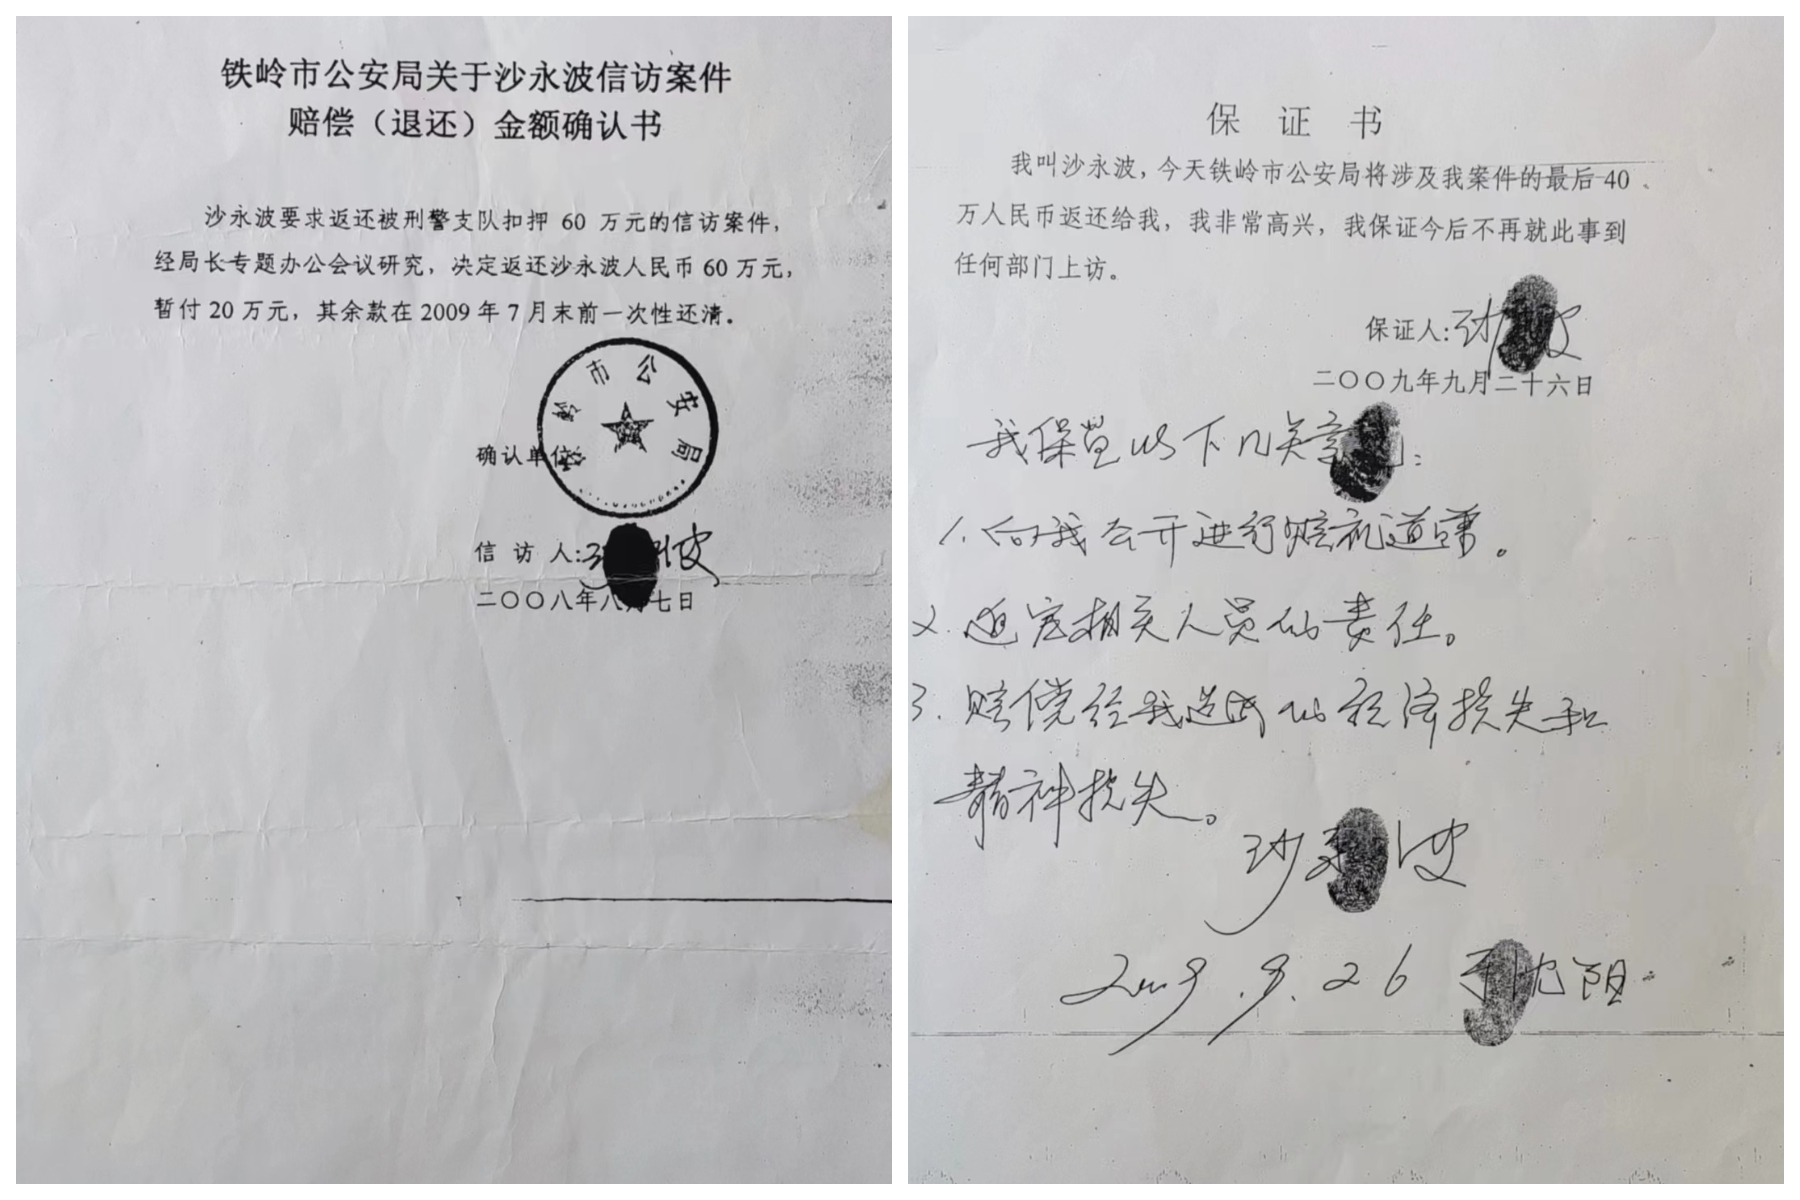 铁岭市公安局关于沙永波信访案件
赔偿（退还）金额确认书
沙永波要求返还被刑警支队扣押 60 万元的信访案件，
经局长专题办公会议研究，决定返还沙永波人民币 60 万元，
暂付 20 万元，其余款在 2009 年 7 月末前一次性还清。
市公安局
确认单位
信 访 人:
二〇〇八年八月七日
保 证 书
我叫沙永波，今天铁岭市公安局将涉及我案件的最后 40
万人民币返还给我，我非常高兴，我保证今后不再就此事到
任何部门上访。
保证人:
二〇〇九年九月二十六日
我保留以下几点意见：
1. 向我公开进行赔礼道歉。
2. 追究相关人员的责任。
3. 赔偿给我造成的经济损失和
精神损失。
沙永波
2009.9.26 于沈阳